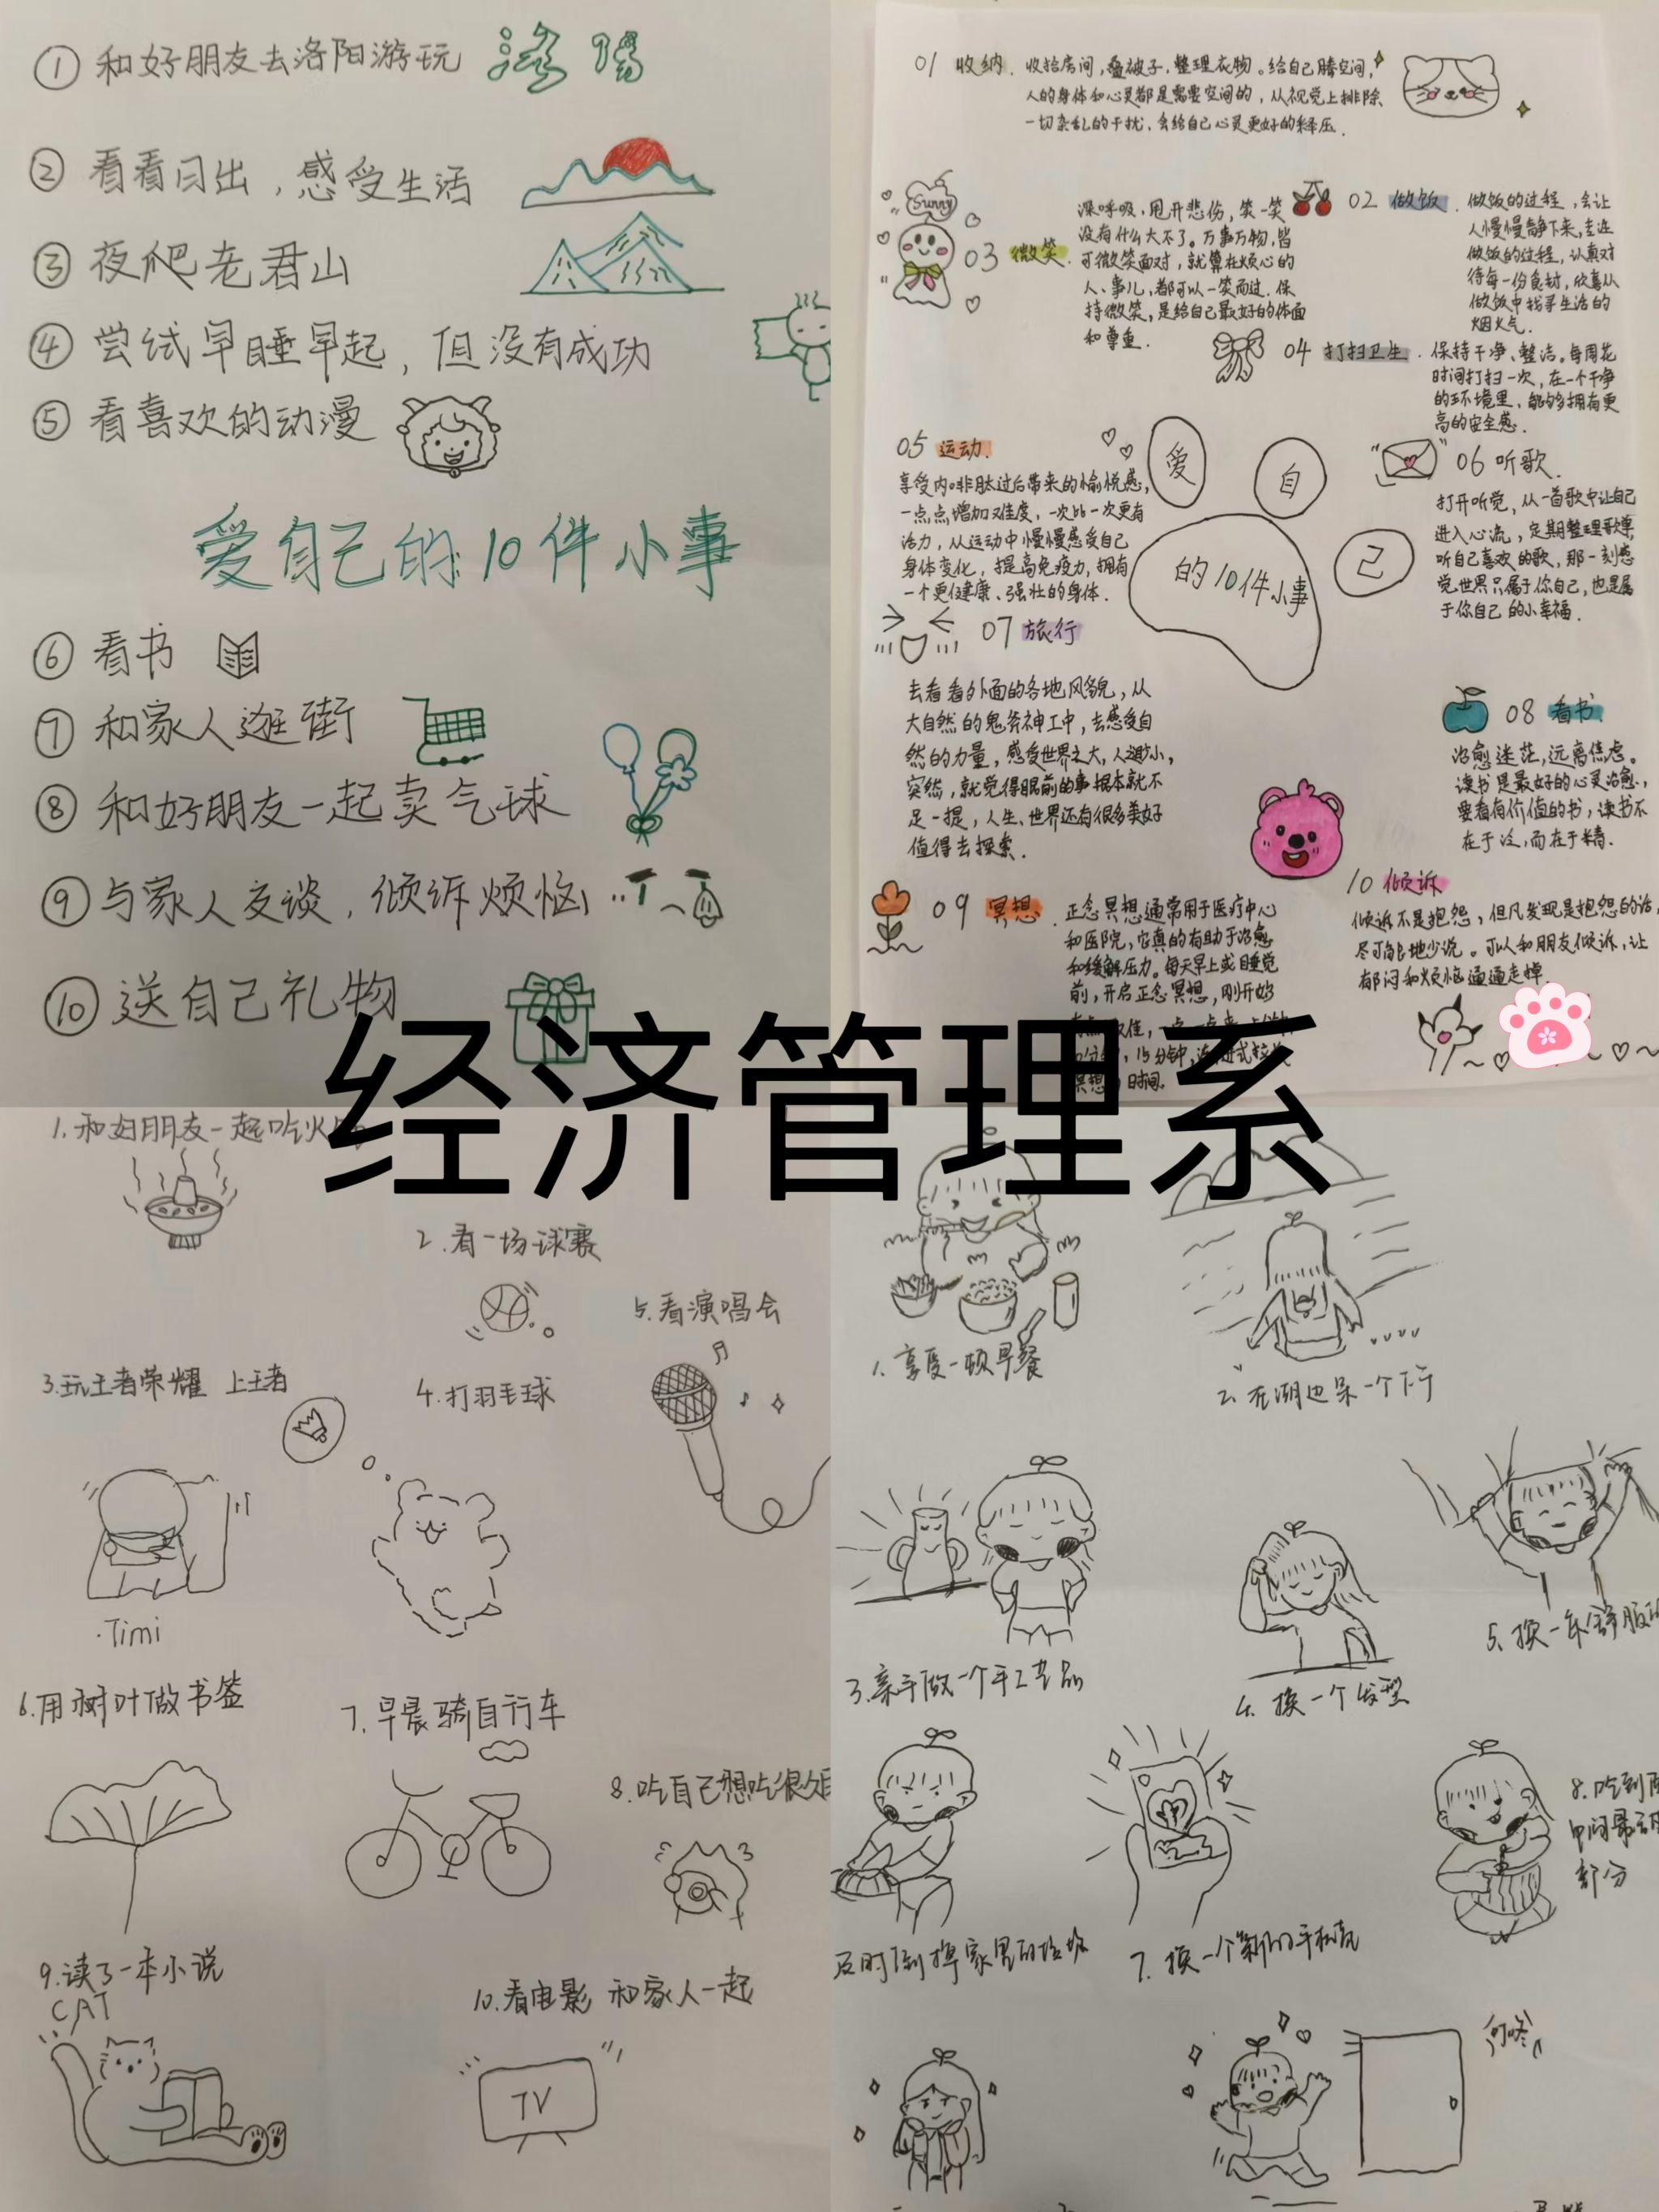 ① 和好朋友去洛阳游玩 洛陽
② 看看日出，感受生活
③ 夜爬老君山
④ 尝试早睡早起，但没有成功
⑤ 看喜欢的动漫
爱自己的10件小事
⑥ 看书
⑦ 和家人逛街
⑧ 和好朋友一起卖气球
⑨ 与家人交谈，倾诉烦恼
⑩ 送自己礼物
01 收纳.
收拾房间，叠被子，整理衣物。给自己腾空间，
人的身体和心灵都是需要空间的，从视觉上排除
一切杂乱的干扰，会给自己心灵更好的释压.
02 做饭.
做饭的过程，会让
人慢慢静下来，去在
做饭的过程，认真对
待每一份食材，欣喜从
做饭中找寻生活的
烟火气.
Sunny
03 微笑.
深呼吸，甩开悲伤，笑一笑
没有什么大不了。万事万物，皆
可微笑面对，就算在烦心的
人、事儿，都可以一笑而过. 保
持微笑，是给自己最好的体面
和尊重.
04 打扫卫生.
保持干净、整洁。每周花
时间打扫一次，在一个干净
的环境里，能够拥有更
高的安全感.
05 运动.
享受内啡肽过后带来的愉悦感，
一点点增加难度，一次比一次更有
活力，从运动中慢慢感受自己
身体变化，提高免疫力，拥有
一个更健康、强壮的身体.
爱
自
己
的10件小事
06 听歌.
打开听觉，从一首歌中让自己
进入心流，定期整理歌单，
听自己喜欢的歌，那一刻感
觉世界只属于你自己，也是属
于你自己的小幸福.
07 旅行
去看看外面的各地风貌，从
大自然的鬼斧神工中，去感受自
然的力量，感受世界之大，人渺小，
突然，就觉得眼前的事根本就不
足一提，人生、世界还有很多美好
值得去探索.
08 看书.
治愈迷茫，远离焦虑。
读书是最好的心灵治愈.，
要看有价值的书，读书不
在于泛，而在于精.
09 冥想.
正念冥想通常用于医疗中心
和医院，它真的有助于治愈
和缓解压力。每天早上或睡觉
前，开启正念冥想，刚开始
时间.
10 倾诉
倾诉不是抱怨，但凡发现是抱怨的话，
尽可能地少说。可以和朋友倾诉，让
郁闷和烦恼通通走掉.
经济管理系
1.和好朋友一起吃火
2.看一场球赛
5.看演唱会
3.玩王者荣耀 上王者
4.打羽毛球
Timi
6.用树叶做书签
7.早晨骑自行车
8.吃自己想吃很久
9.读了一本小说
CAT
10.看电影 和家人一起
TV
1.享受一顿早餐
2.在湖边呆一个下午
3.亲手做一个手工艺品
4.换一个发型
5.换一床舒服
及时倒掉家里的垃圾
7.换一个新的手机壳
8.吃到
中间最甜
部分
叮咚